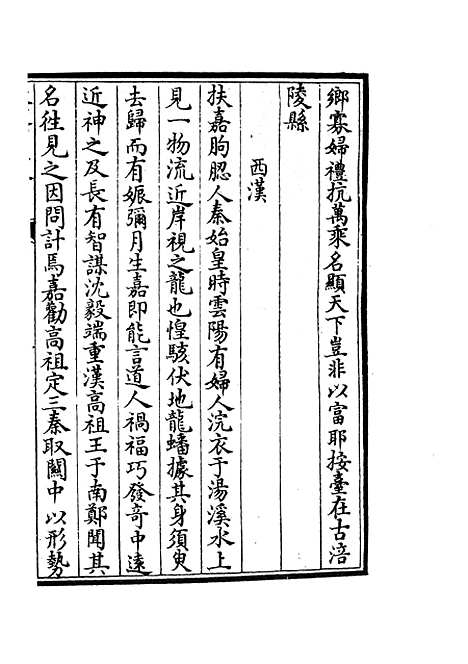 鄉寡婦禮抗萬乘名顯天下豈非以富耶按臺在古涪
陵縣
西漢
扶嘉朐䏰人秦始皇時雲陽有婦人浣衣于湯溪水上
見一物流近岸視之龍也惶駭伏地龍蟠據其身須臾
去歸而有娠彌月生嘉即能言道人禍福巧發奇中遠
近神之及長有智謀沈毅端重漢高祖王于南鄭聞其
名徃見之因問計焉嘉勸高祖定三秦取關中以形勢